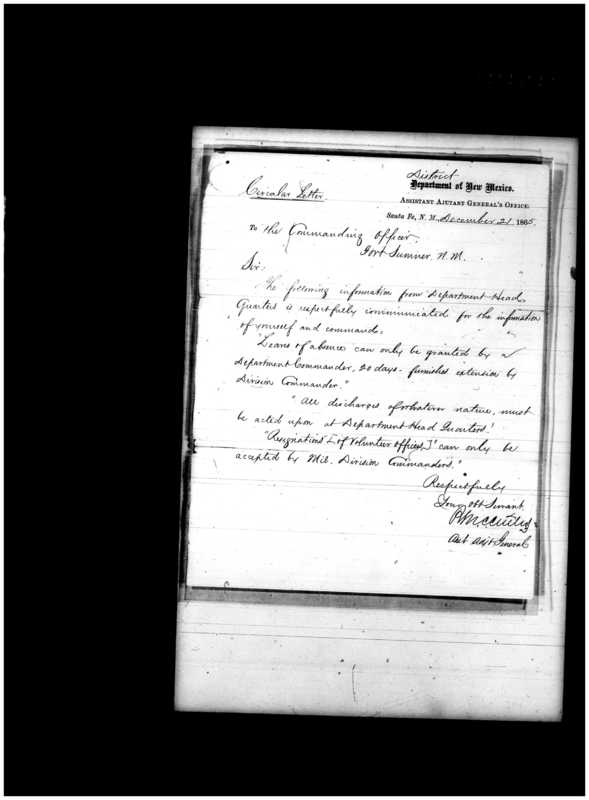 District
Circular Letter
Department of New Mexico.
ASSISTANT AJUTANT GENERAL'S OFFICE.
Santa Fe, N. M. December 21, 1865.
To the Commanding Officer,
Fort Sumner, N. M.
Sir,
The following information from Department Head
Quarters is respectfully communicated for the information
of yourself and command.
"Leaves of absence can only be granted by a
Department Commander, 20 days - extension by
Division Commander."
"All discharges of nature, must
be acted upon at Department Head Quarters."
"Resignations [of Volunteer officers]" can only be
accepted by Mil. Division Commanders."
Respectfully
Your Obt Servant.
Asst Adjt General